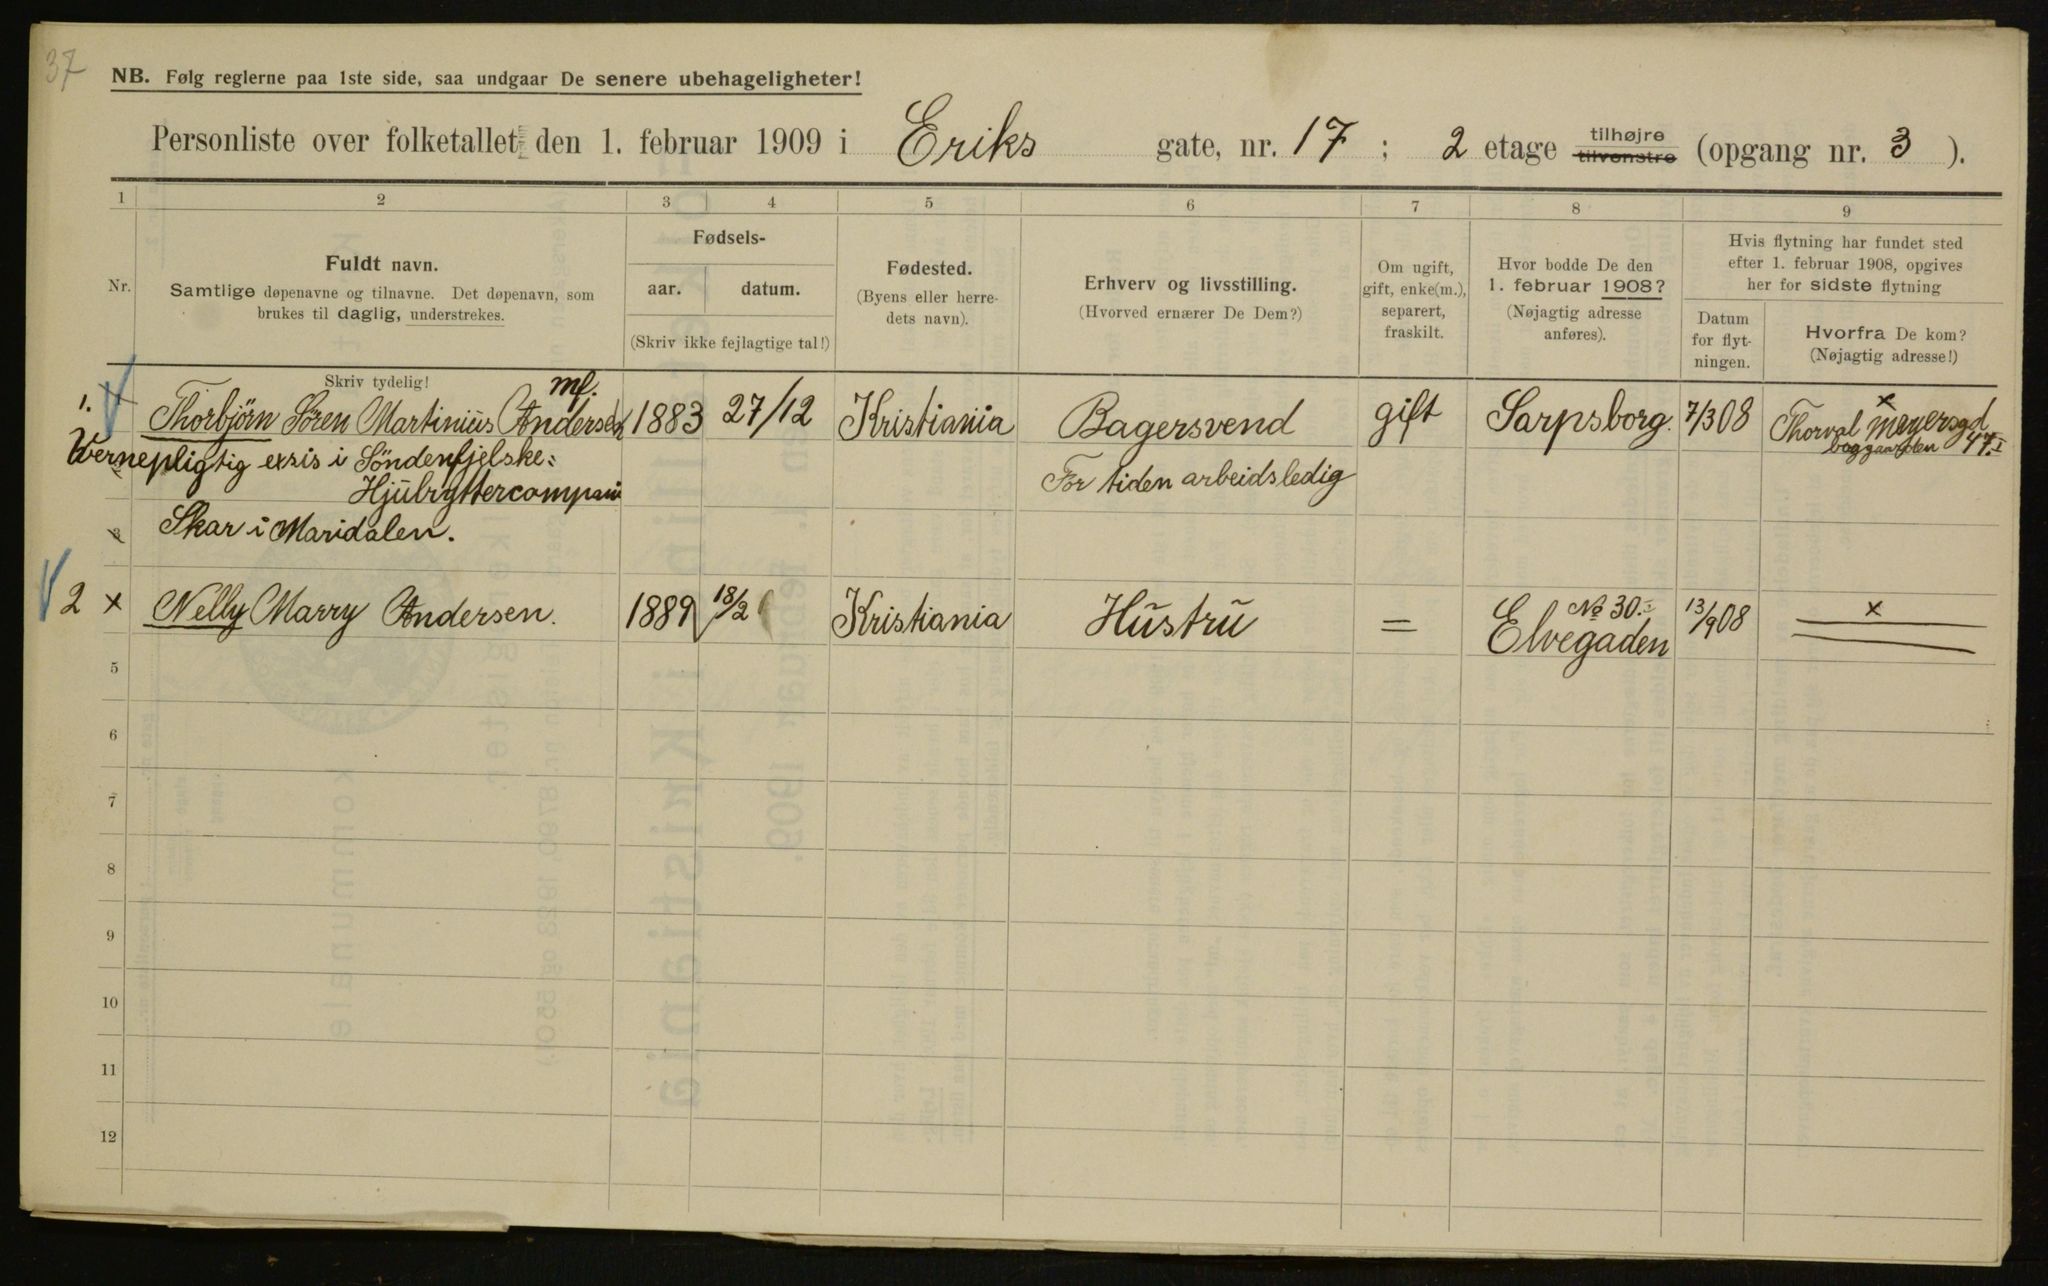 37
NB. Følg reglerne paa 1ste side, saa undgaar De senere ubehageligheter!
Personliste over folketallet den 1. februar 1909 i Eriks gate, nr. 17 ; 2 etage tilhøjre tilvenstre (opgang nr. 3 ).
1 2 3 4 5 6 7 8 9
Nr.
Fuldt navn.
Samtlige døpenavne og tilnavne. Det døpenavn, som
brukes til daglig, understrekes.
Skriv tydelig!
Fødsels-
aar. datum.
(Skriv ikke fejlagtige tal!)
Fødested.
(Byens eller herre-
dets navn).
Erhverv og livsstilling.
(Hvorved ernærer De Dem?)
Om ugift,
gift, enke(m.),
separert,
fraskilt.
Hvor bodde De den
1. februar 1908?
(Nøjagtig adresse
anføres).
Hvis flytning har fundet sted
efter 1. februar 1908, opgives
her for sidste flytning
Datum
for flyt-
ningen.
Hvorfra De kom?
(Nøjagtig adresse!)
mf. x
1. Thorbjörn Sören Martinius Andersen 1883 27/12 Kristiania Bagersvend gift Sarpsborg. 7/3 08 Thorval Meyersgd
baggaarden 47.I
Wernepligtig exsis i Söndenfjelske: For tiden arbeidsledig
Hjulryttercompani
3 Skar i Maridalen.
No 30.I
2 x Nelly Marry Andersen. 1889 18/2 Kristiania Hustru = Elvegaden 13/9 08 x
5
6
7
8
9
10
11
12